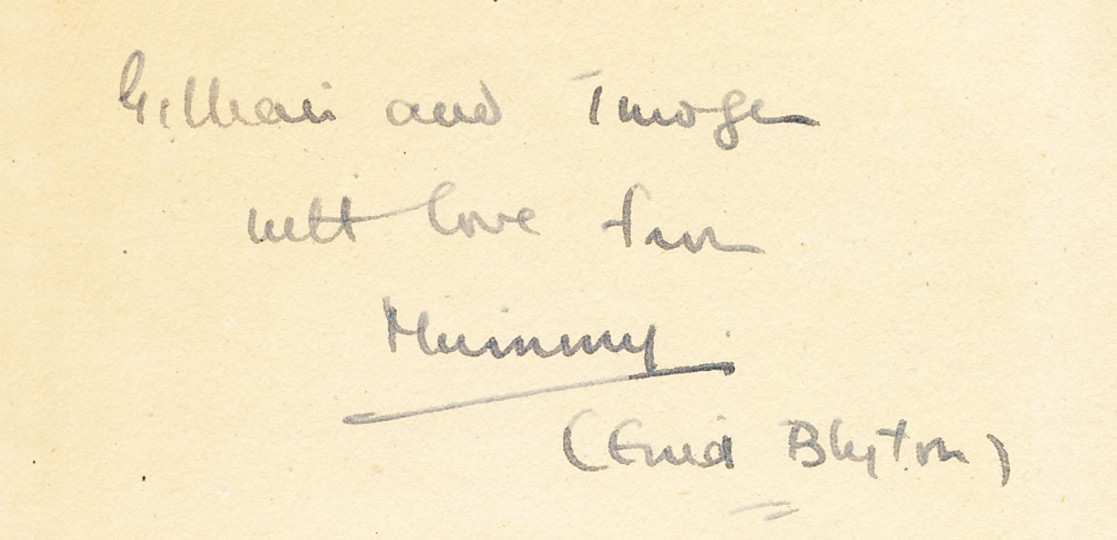 Gillian and Imogen
with love from
Mummy.
(Enid Blyton)